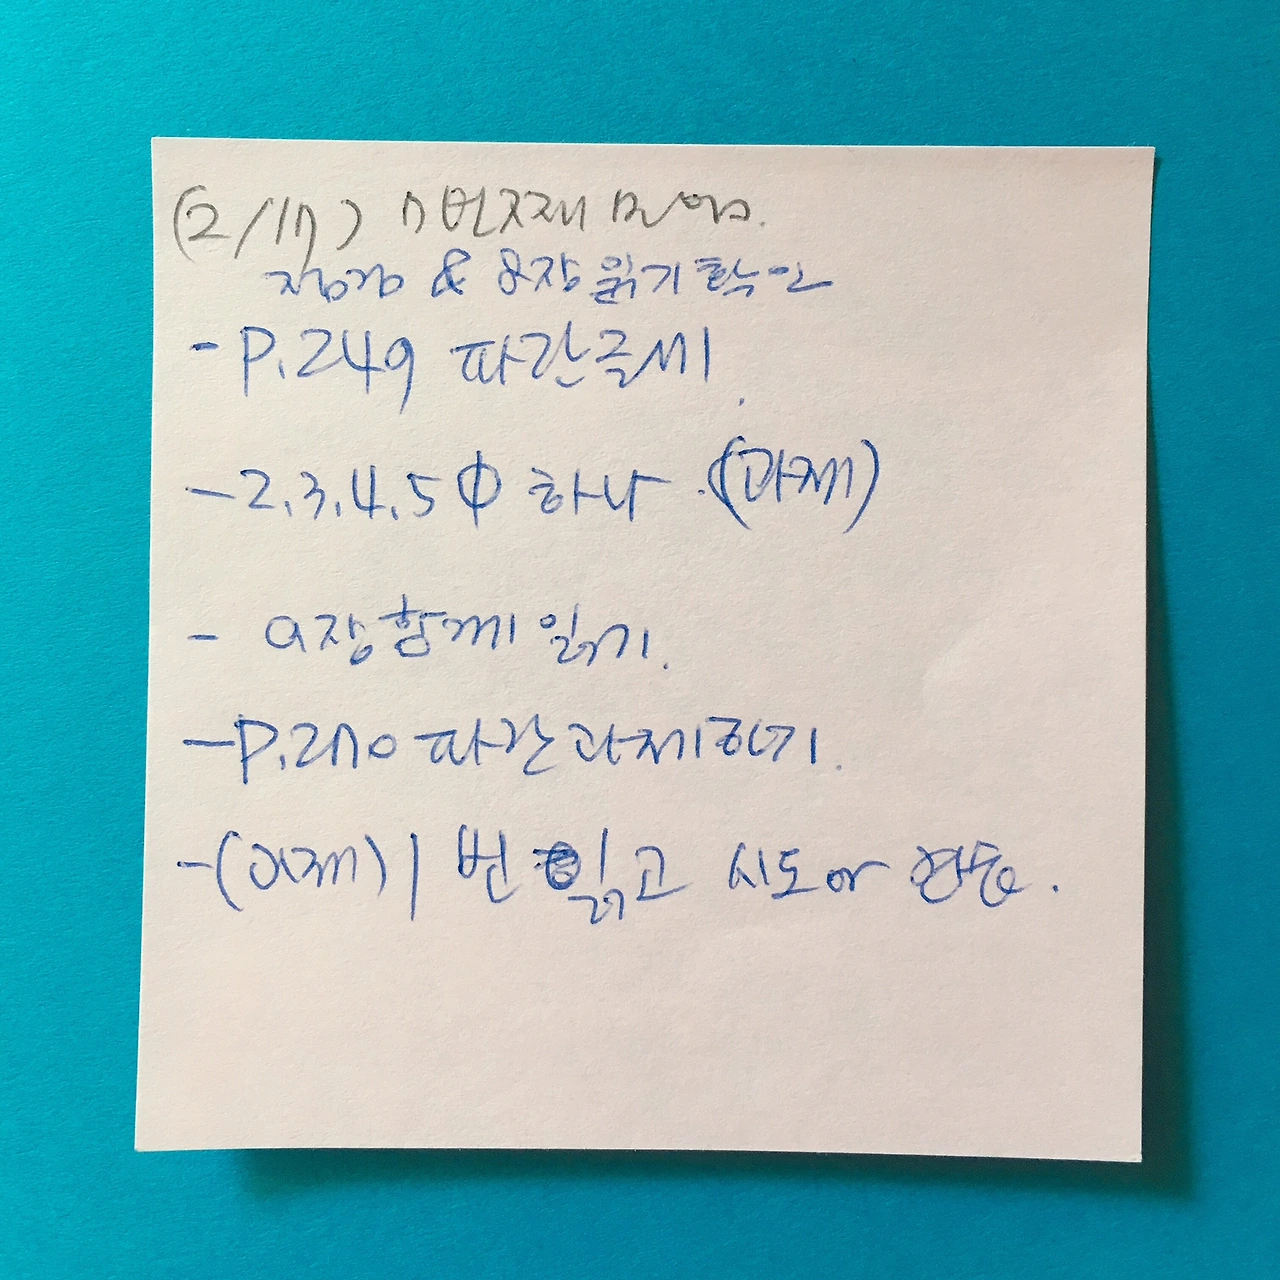 (2/17) 7번째 모임.
점검 & 8장 읽기 확인
- P.249 파란글씨
- 2.3.4.5 中 하나 (과제)
- 9장 함께 읽기.
- P.270 파란 과제하기.
- (과제) 1번 읽고 시도와